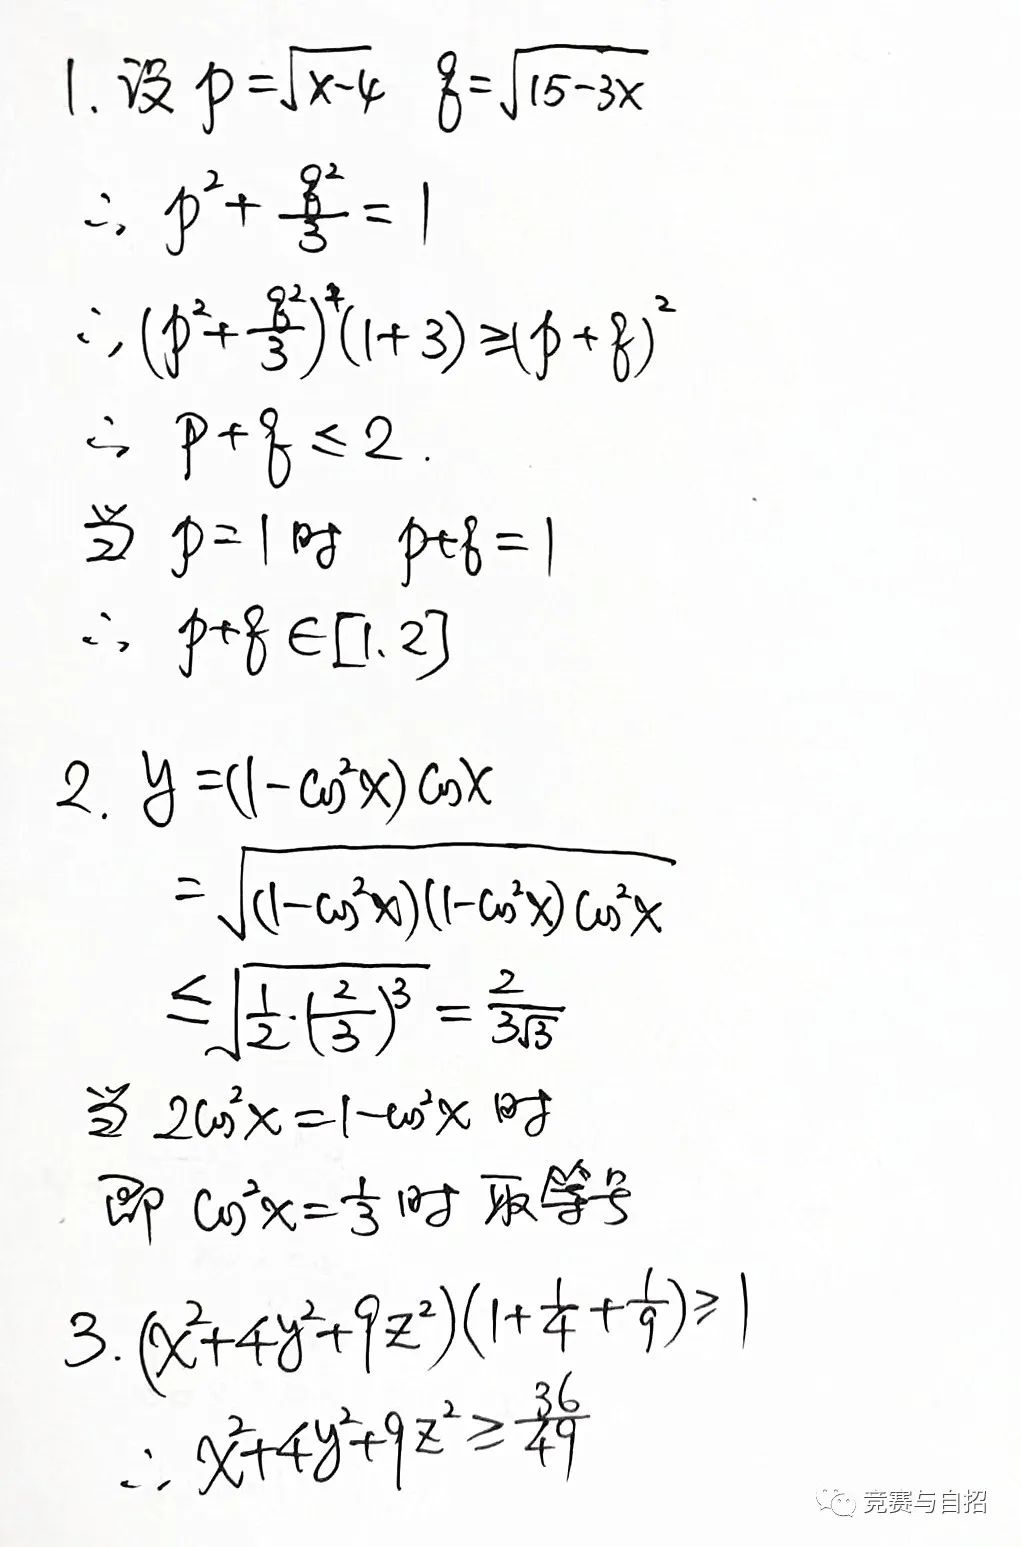 1. 设 p=√(x-4) q=√(15-3x)
∴ p²+q²/3=1
∴ (p²+q²/3)(1+3)≥(p+q)²
∴ p+q≤2.
当 p=1时 p+q=1
∴ p+q∈[1.2]
2. y=(1-cos²x)cosx
=√((1-cos²x)(1-cos²x)cos²x)
≤√(1/2·(2/3)³)=2/(3√3)
当 2cos²x=1-cos²x 时
即 cos²x=1/3时 取等号
3. (x²+4y²+9z²)(1+1/4+1/9)≥1
∴ x²+4y²+9z²≥36/49
竞赛与自招